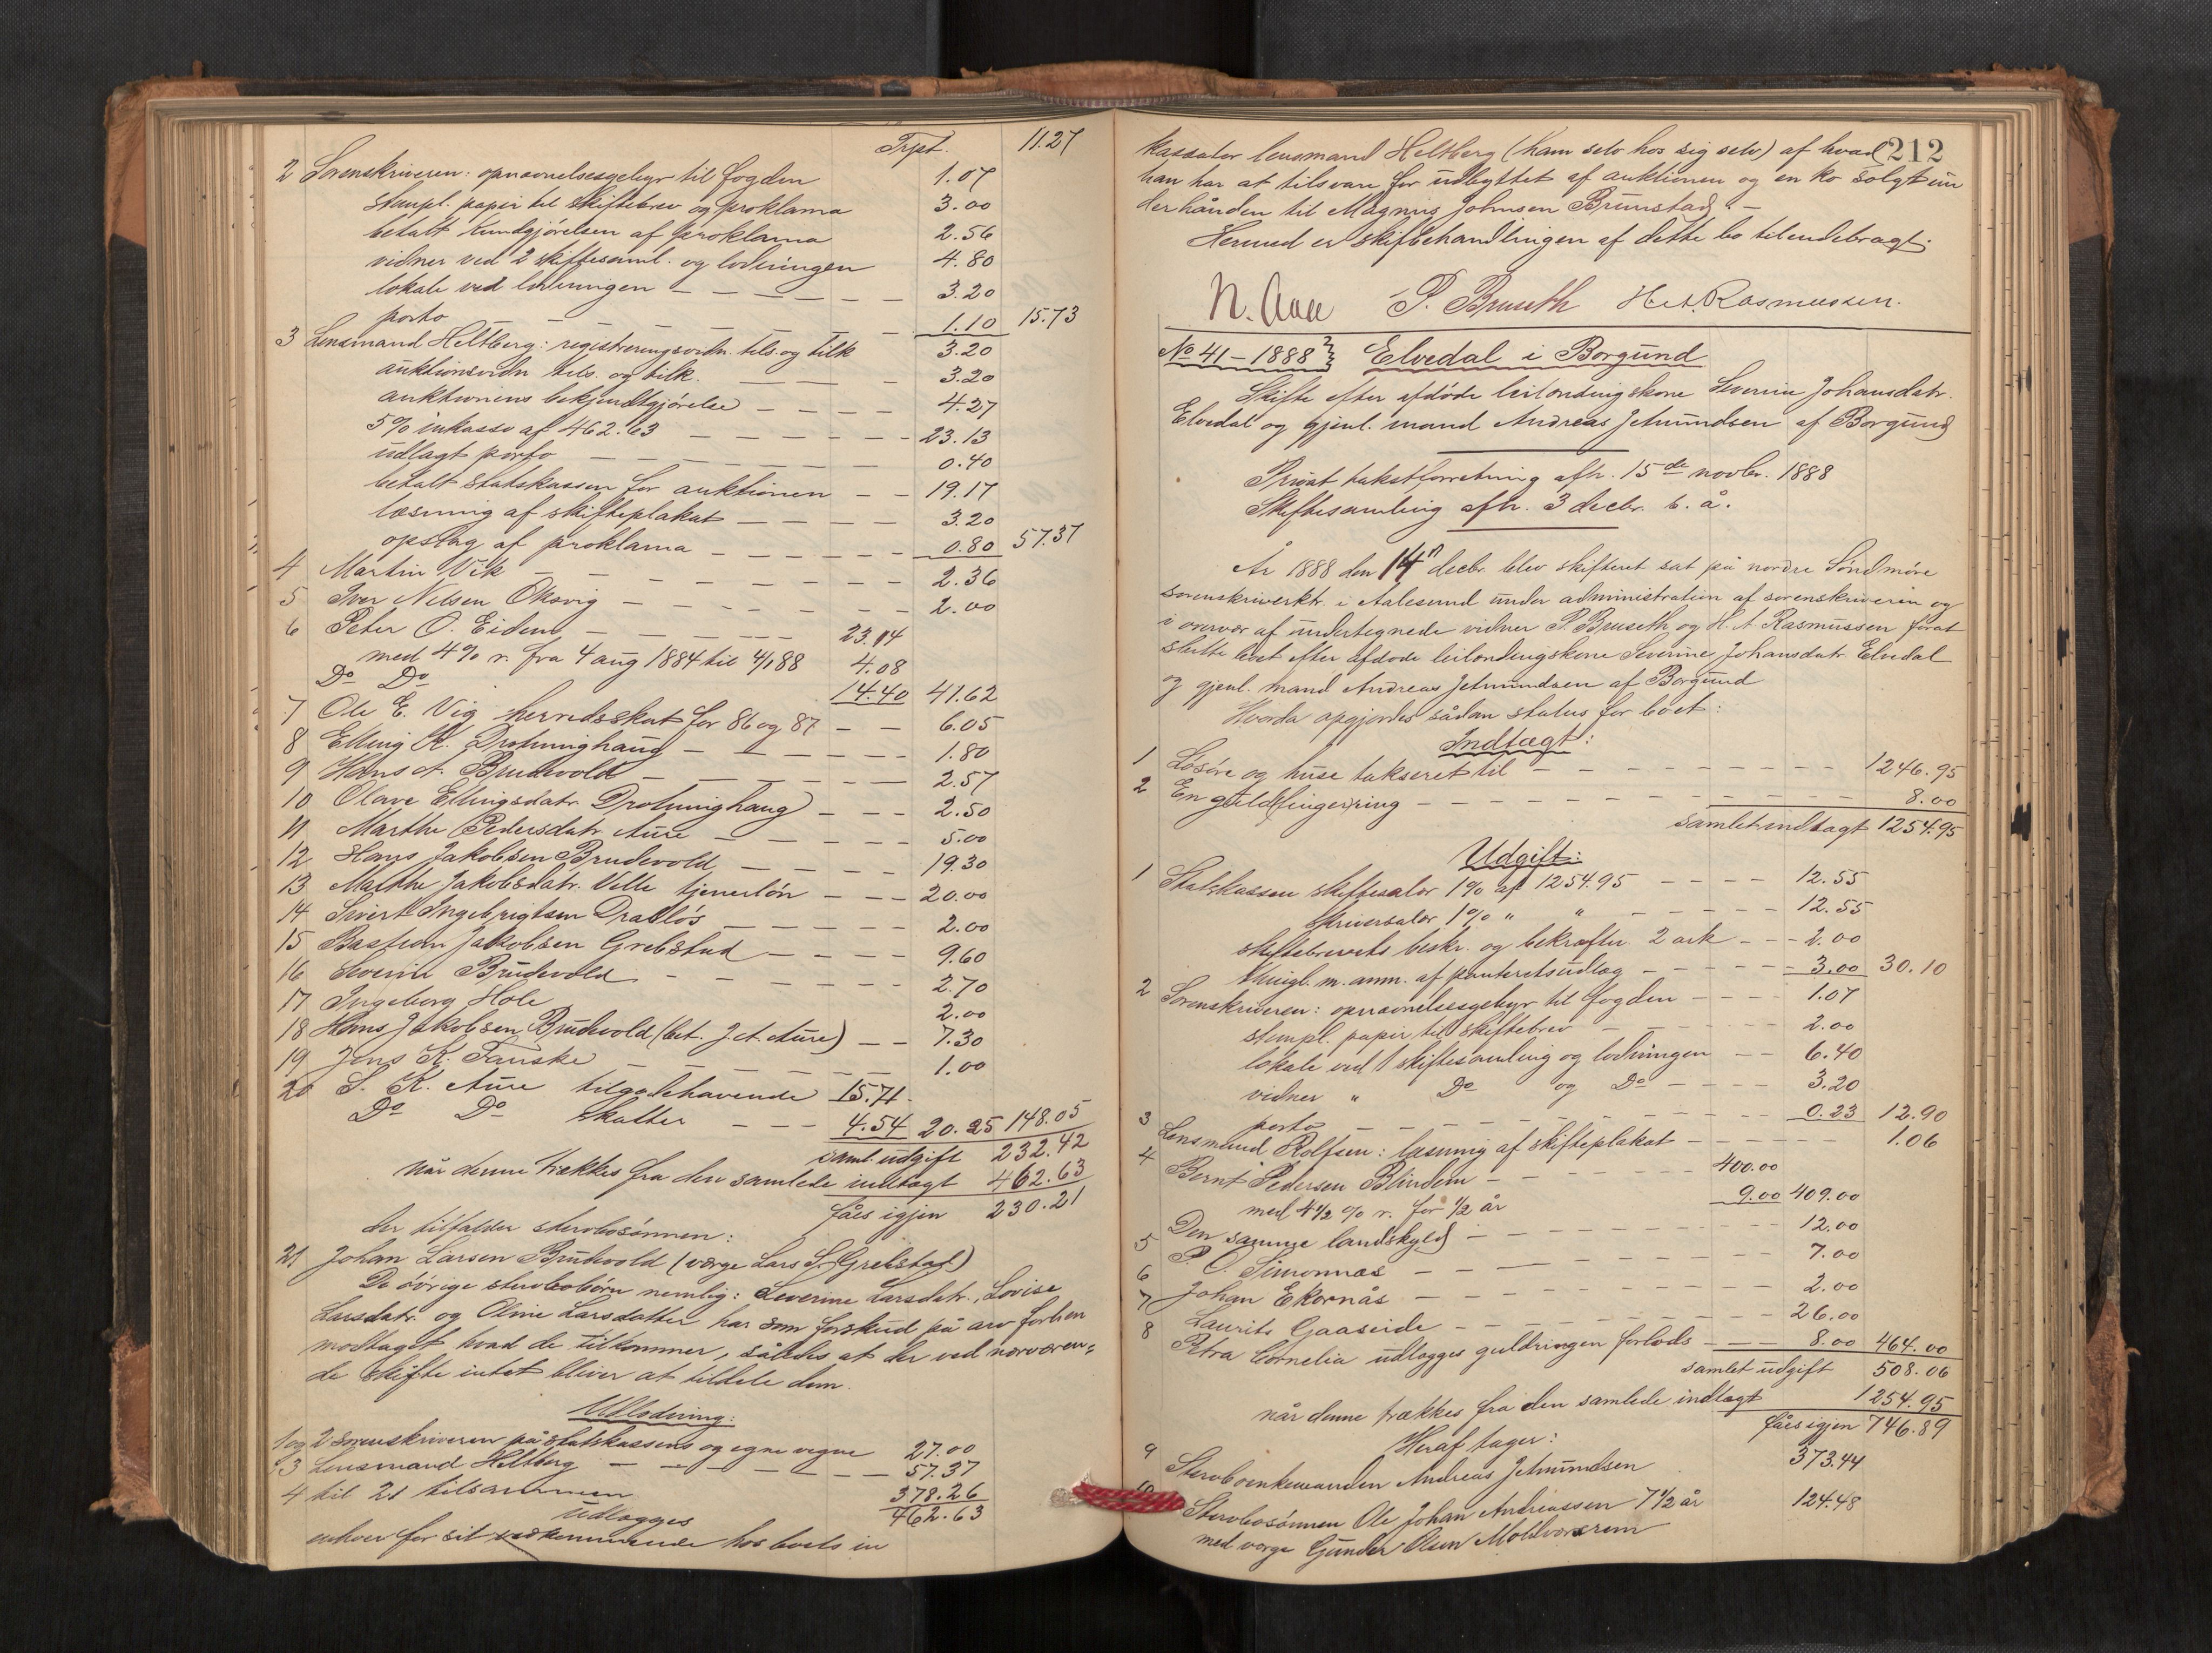 Trpt. 11.27
2 Sorenskriveren: opnævnelsesgebyr til fogden 1.07
stempl. papir til skiftebrev og proklama 3.00
betalt kundgjørelsen af proklama 2.56
vidner ved 2 skiftesaml. og lodningen 4.80
lokale ved lodningen 3.20
porto 1.10 15.73
3 Lensmand Heltberg: registreringsvidn. tils. og tilk 3.20
auktionsvidn tils. og tilk. 3.20
auktionens bekjendtgjörelse 4.27
5% inkasso af 462.63 23.13
udlagt porto 0.40
betalt statskassen for auktionen 19.17
læsning af skifteplakat 3.20
opslag af proklama 0.80 57.37
4 Martin Vik 2.36
5 Iver Nelsen Oksvig 2.00
6 Peter O. Eidem 23.14
med 4% r. fra 4 aug 1884 til 4/1 88 4.08
Do Do 14.40 41.62
7 Ole E. Vig herredsskat for 86 og 87 6.05
8 Elling K. Drotninghaug 1.80
9 Hans A. Brudevold 2.57
10 Olave Ellingsdatr Drotninghaug 2.50
11 Marthe Pedersdatr. Aure 5.00
12 Hans Jakobsen Brudevold 19.30
13 Marthe Jakobsdatr. Velle tjenerlön 20.00
14 Sivert Ingebrigtsen Drabløs 2.00
15 Bastian Jakobsen Grebstad 9.60
16 Severin Brudevold 2.70
17 Ingeborg Hole 2.00
18 Hans Jakobsen Brudevold (bet. J. A. Aure) 7.30
19 Jens K. Fauske 1.00
20 S. K. Aure tilgodehavende 15.71
Do Do skatter 4.54 20.25 148.05
saml. udgift 232.42
når denne trækkes fra den samlede indtægt 462.63
fåes igjen 230.21
der tilfalder sterbosönnen:
21 Johan Larsen Brudevold (værge Lars S. Grebstad)
De övrige sterbobörn nemlig: Severine Larsdatr., Lovise
Larsdatr. og Oline Larsdatter har som forskud på arv forhen
modtaget hvad de tilkommer, således at der ved nærværen-
de skifte intet bliver at tildele dem.
Udlodning:
1 og 2 Sorenskriveren på Statskassens og egne vegne 27.00
3 Lensmand Heltberg 57.37
4 til 21 tilsammen 378.26
462.63
udlægges
enhver for sit vedkommende hos boets in
212
kassator lensmand Heltberg (ham selv hos sig selv) af hvad
han har at tilsvare for udbyttet af auktionen og en ko solgt un
derhånden til Magnus Johnsen Brunstad. —
Hermed er skiftbehandlingen af dette bo tilendebragt.
N. Aall P. Bruseth H. A. Rasmussen.
No 41 – 1888 Elvedal i Borgund
Skifte efter afdöde leilændingskone Severine Johansdatr.
Elvedal og gjenl. mand Andreas Jetmundsen af Borgund
Privat takstforretning afh. 15de novbr. 1888
Skiftesamling afh. 3 decbr. s. å.
År 1888 den 14n decbr. blev skifteret sat på nordre Söndmöre
sorenskriverktr. i Aalesund under administration af sorenskriveren og
i overvær af undertegnede vidner P. Bruseth og H. A. Rasmussen forat
slutte boet efter afdöde leilændingskone Severine Johansdatr Elvedal
og gjenl. mand Andreas Jetmundsen af Borgund
Hvorda opgjordes sådan status for boet:
Indtægt:
1 Lösöre og huse takseret til 1246.95
2 En guld(finger)ring 8.00
samlet indtægt 1254.95
Udgift:
1 Statskassen skiftesalær 1% af 1254.95 12.55
Skriversalær 1% " " 12.55
skiftebrevets beskr. og bekræftn. 2 ark 2.00
thingl. m. anm. af panteretsudlæg 3.00 30.10
2 Sorenskriveren: opnævnelsesgebyr til fogden 1.07
stempl. papir til skiftebrev 2.00
lokale ved 1 skiftesamling og lodningen 6.40
vidner " Do og Do 3.20
porto 0.23 12.90
3 Lensmand Rolfsen: læsning af skifteplakat 1.06
4 Bernt Pedersen Blindem 400.00
med 4½ % r. for ½ år 9.00 409.00
Den samme landskyld 12.00
5 P. O. Simonnæs 7.00
6 Johan Ekornås 2.00
7 Laurits Gaaseide 26.00
8 Petra Cornelia udlægges guldringen forlods 8.00 464.00
samlet udgift 508.06
når denne trækkes fra den samlede indtægt 1254.95
fåes igjen 746.89
Heraf tager:
9 Sterboenkemanden Andreas Jetmundsen 373.44
10 Sterbosönnen Ole Johan Andreassen 7½ år 124.48
med værge Gunder Olsen Moldværsrem